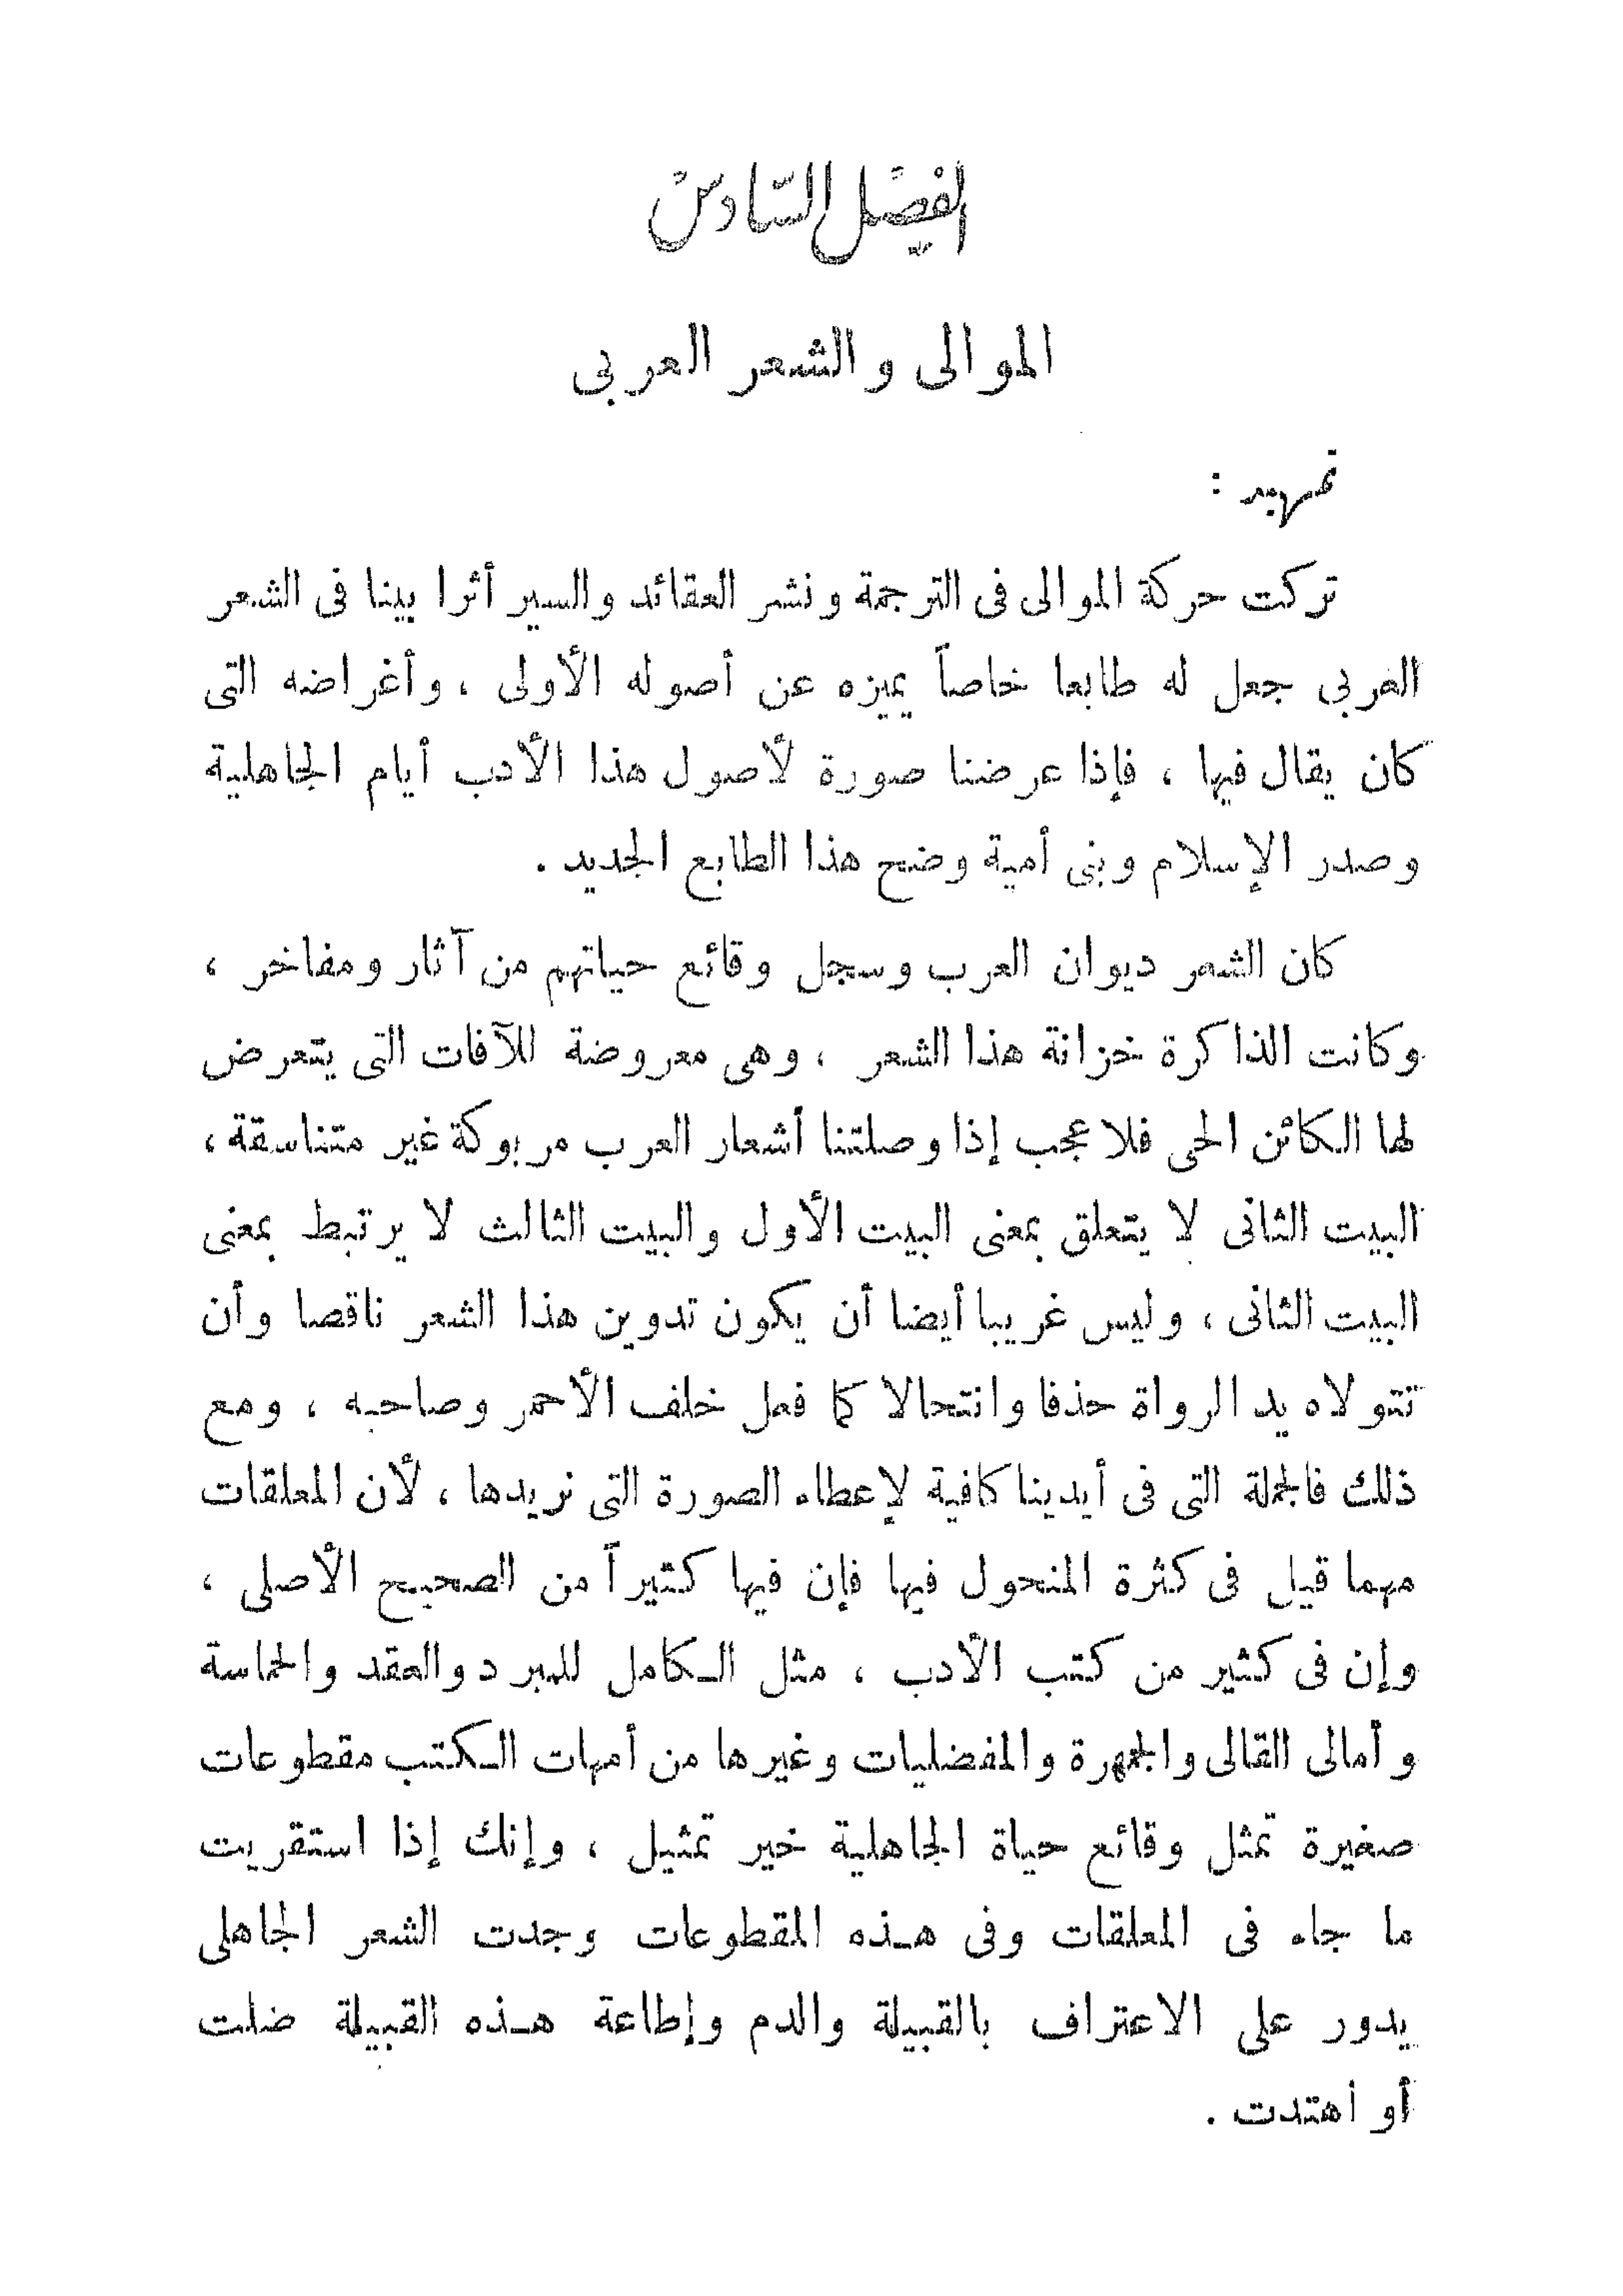 الفصل السادس
الموالى والشعر العربى
تمهيد :
تركت حركة الموالى فى الترجمة ونشر العقائد والسير أثرا بينا فى الشعر
العربى جعل له طابعا خاصاً يميزه عن أصوله الأولى ، وأغراضه التى
كان يقال فيها ، فإذا عرضنا صورة لأصول هذا الأدب أيام الجاهلية
وصدر الإسلام وبنى أمية وضح هذا الطابع الجديد .
كان الشعر ديوان العرب وسجل وقائع حياتهم من آثار ومفاخر ،
وكانت الذاكرة خزانة هذا الشعر ، وهى معروضة للآفات التى يتعرض
لها الكائن الحى فلا عجب إذا وصلتنا أشعار العرب مربوكة غير متناسقة ،
البيت الثانى لا يتعلق بمعنى البيت الأول والبيت الثالث لا يرتبط بمعنى
البيت الثانى ، وليس غريبا أيضا أن يكون تدوين هذا الشعر ناقصا وأن
تتولاه يد الرواة حذفا وانتحالا كما فعل خلف الأحمر وصاحبه ، ومع
ذلك فالجملة التى فى أيدينا كافية لإعطاء الصورة التى نريدها ، لأن المعلقات
مهما قيل فى كثرة المنحول فيها فإن فيها كثيراً من الصحيح الأصلى ،
وإن فى كثير من كتب الأدب ، مثل الكامل للمبرد والعقد والحماسة
وأمالى القالى والجمهرة والمفضليات وغيرها من أمهات الكتب مقطوعات
صغيرة تمثل وقائع حياة الجاهلية خير تمثيل ، وإنك إذا استقريت
ما جاء فى المعلقات وفى هذه المقطوعات وجدت الشعر الجاهلى
يدور على الاعتراف بالقبيلة والدم وإطاعة هذه القبيلة ضلت
أو اهتدت .